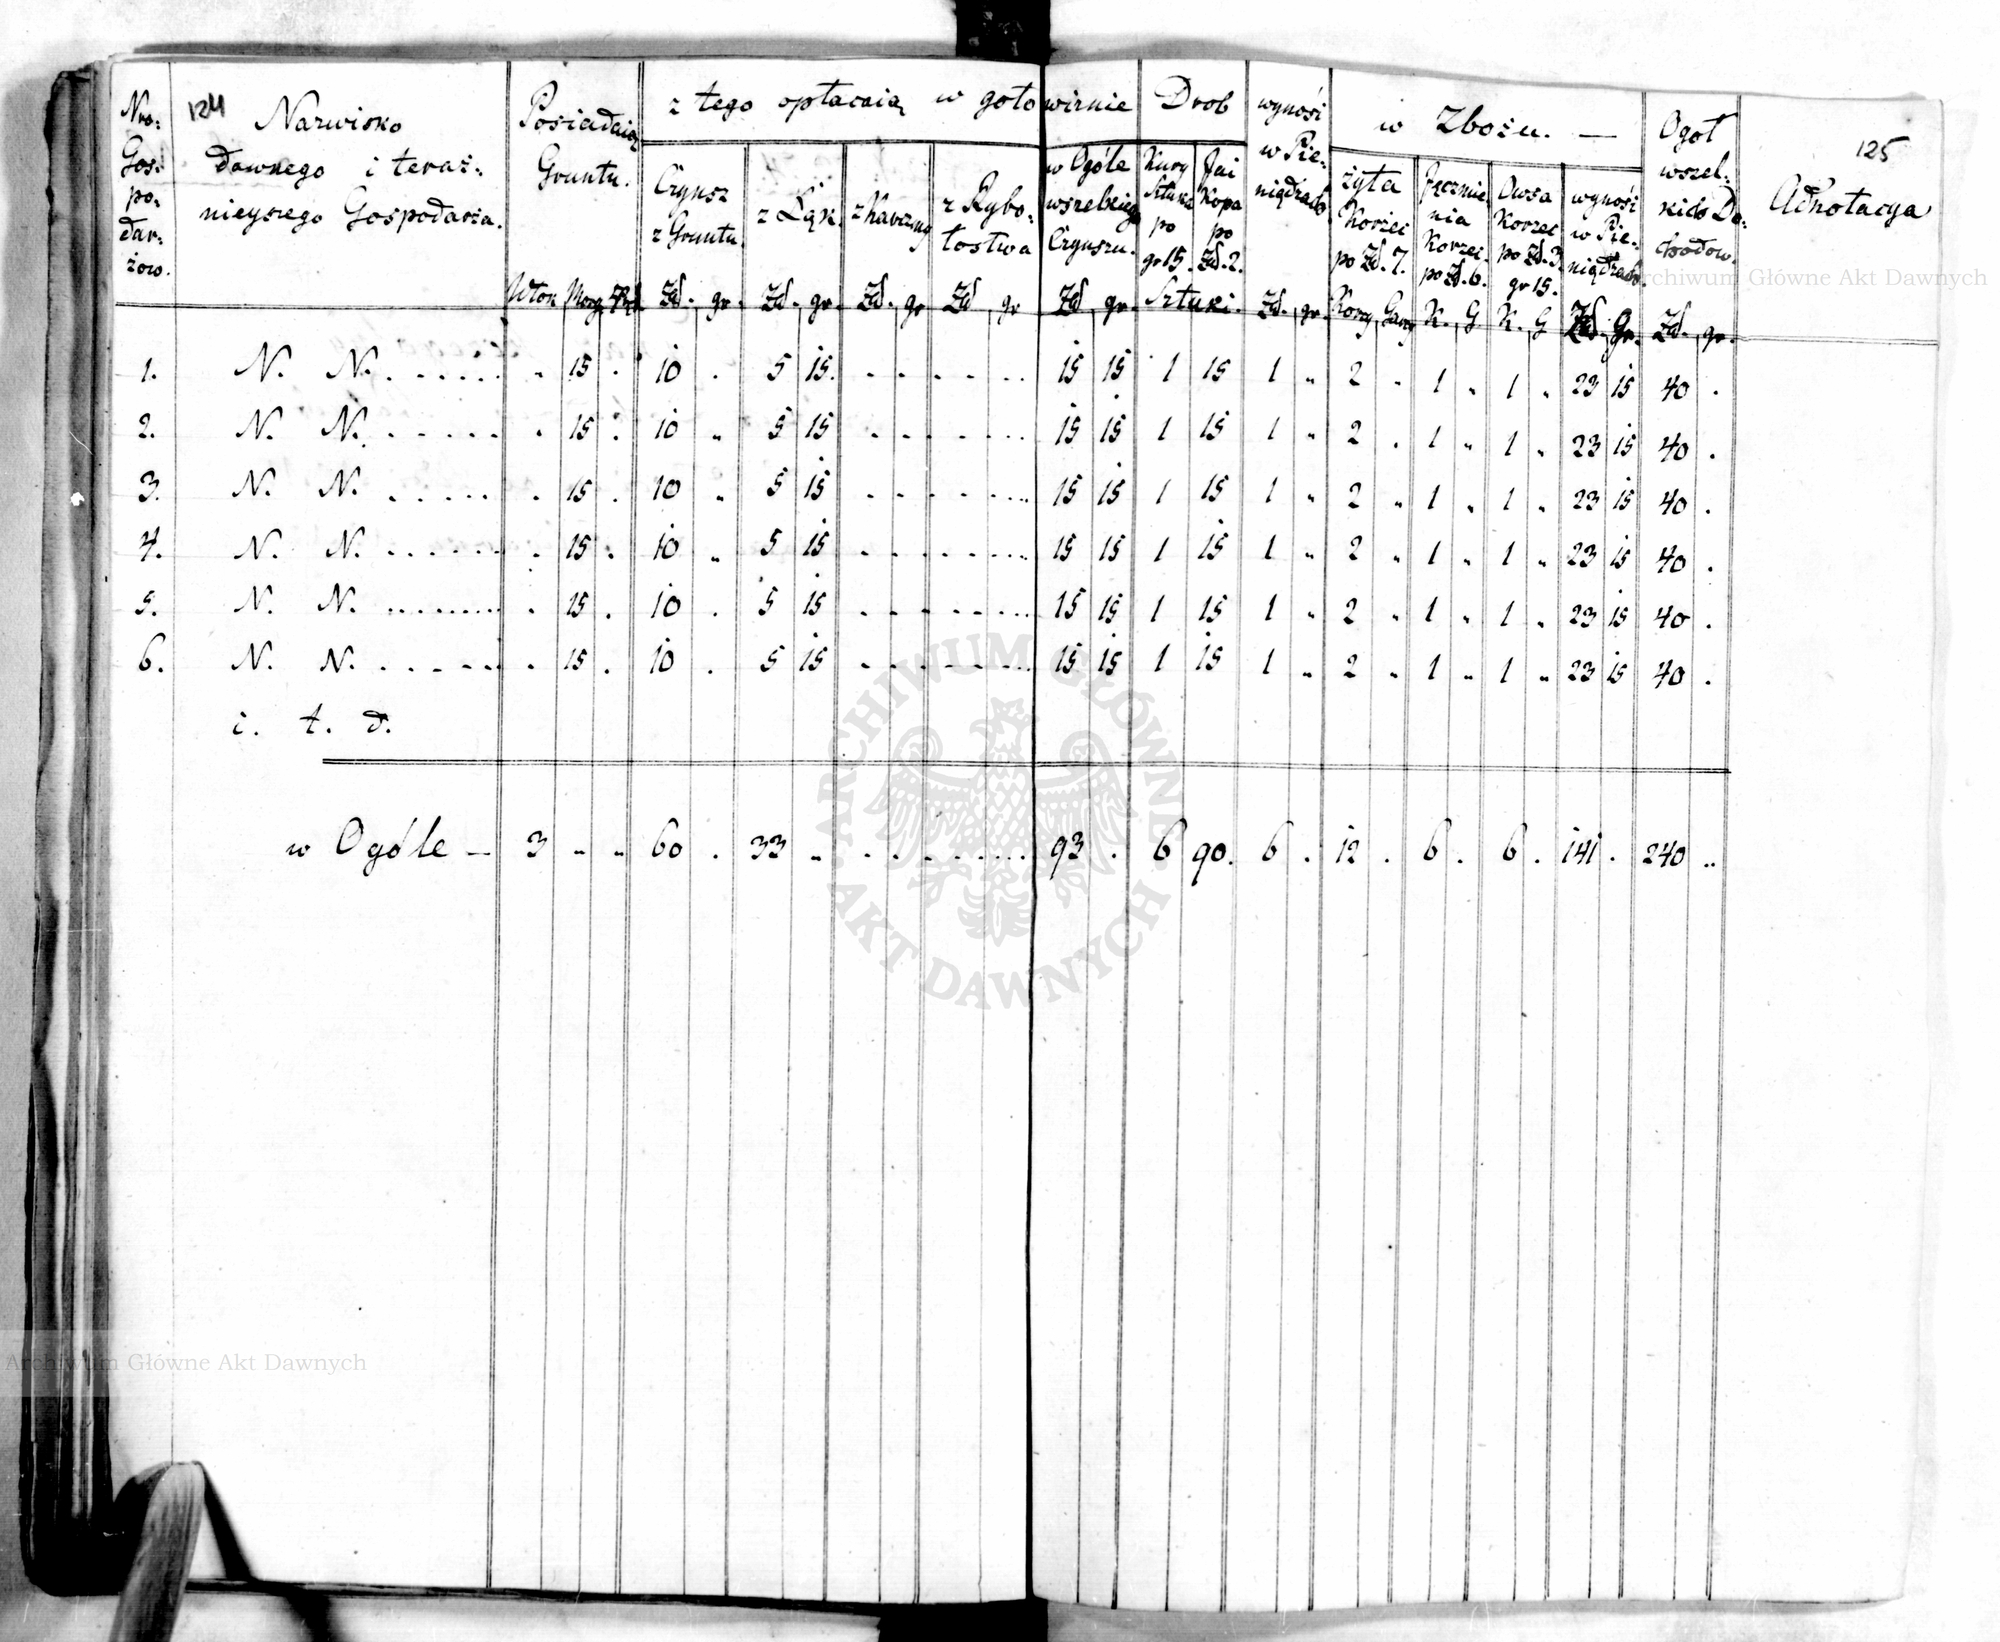 124
125
Nro: Gos: po: dar: żow.
Nazwisko
dawnego i teraź:
nieyszego Gospodarza.
Posiadaią
Gruntu.
Włok Morg Prt
z tego opłacaią w gotowiznie
Czynsz
z Gruntu.
Zł. gr.
z Łąk.
Zł. gr.
z Karczmy
Zł. gr
z Rybo:
łostwa
Zł gr
w Ogóle
wszelkiego
Czynszu.
Zł gr.
Drob
Kury
Sztuka
po
gr 15.
Jai
Kopa
po
Zł. 2.
Sztuki.
wynosi
w Pie:
niądzach
Zł. gr.
w Zbożu. —
żyta
Korzec
po Zł. 7.
Korcy Garcy
Jęczmie:
nia
Korzec.
po Zł. 6.
K. G
Owsa
Korzec
po Zł. 3.
gr 15.
K. G
wynosi
w Pie:
niądzach.
Zł. Gr.
Ogoł
wszel:
kich Do:
chodow.
Zł. gr.
Adnotacya
1. N. N. . . . . . . . 15 . 10 . 5 15. . . . . . . 15 15 1 15 1 " 2 " 1 " 1 " 23 15 40 .
2. N. N. . . . . . . . 15 . 10 " 5 15 . . . . . . 15 15 1 15 1 " 2 . 1 " 1 " 23 15 40 .
3. N. N. . . . . . . . 15 . 10 " 5 15 . . . . . . 15 15 1 15 1 " 2 " 1 " 1 " 23 15 40 .
4. N. N. . . . . . . . 15 . 10 " 5 15 . . . . . . 15 15 1 15 1 " 2 " 1 " 1 " 23 15 40 .
5. N. N. . . . . . . . 15 . 10 . 5 15 . . . . . . 15 15 1 15 1 " 2 " 1 " 1 " 23 15 40 .
6. N. N. . . . . . . . 15 . 10 . 5 15 . . . . . . 15 15 1 15 1 " 2 " 1 " 1 " 23 15 40 .
i. t. d.
w Ogóle — 3 " " 60 . 33 " . . . . . . 93 . 6 90. 6 . 12 . 6 . 6 . 141 . 240 "
Archiwum Główne Akt Dawnych
ARCHIWUM GŁÓWNE AKT DAWNYCH
Archiwum Główne Akt Dawnych